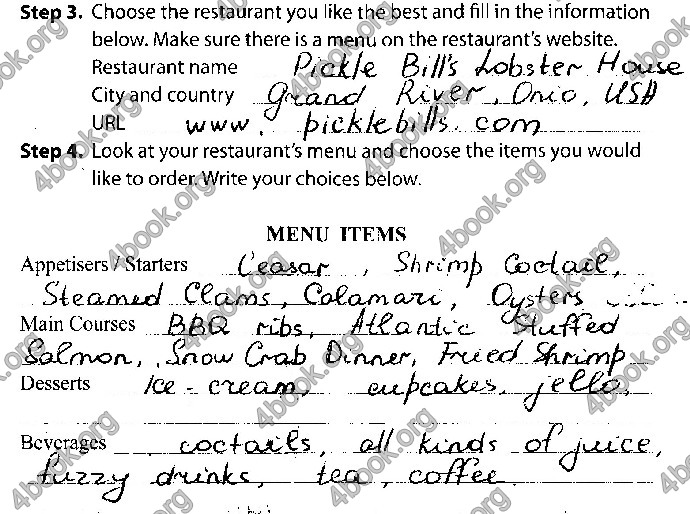 Step 3. Choose the restaurant you like the best and fill in the information
below. Make sure there is a menu on the restaurant's website.
Restaurant name Pickle Bill's Lobster House
City and country Grand River, Onio, USA
URL www. picklebills.com
Step 4. Look at your restaurant's menu and choose the items you would
like to order. Write your choices below.
MENU ITEMS
Appetisers / Starters Ceasar, Shrimp Coctail,
Steamed Clams, Calamari, Oysters
Main Courses BBQ ribs, Atlantic Stuffed
Salmon, Snow Crab Dinner, Fried Shrimp
Desserts Ice-cream, cupcakes, jello,
Beverages coctails, all kinds of juice,
fuzzy drinks, tea, coffee